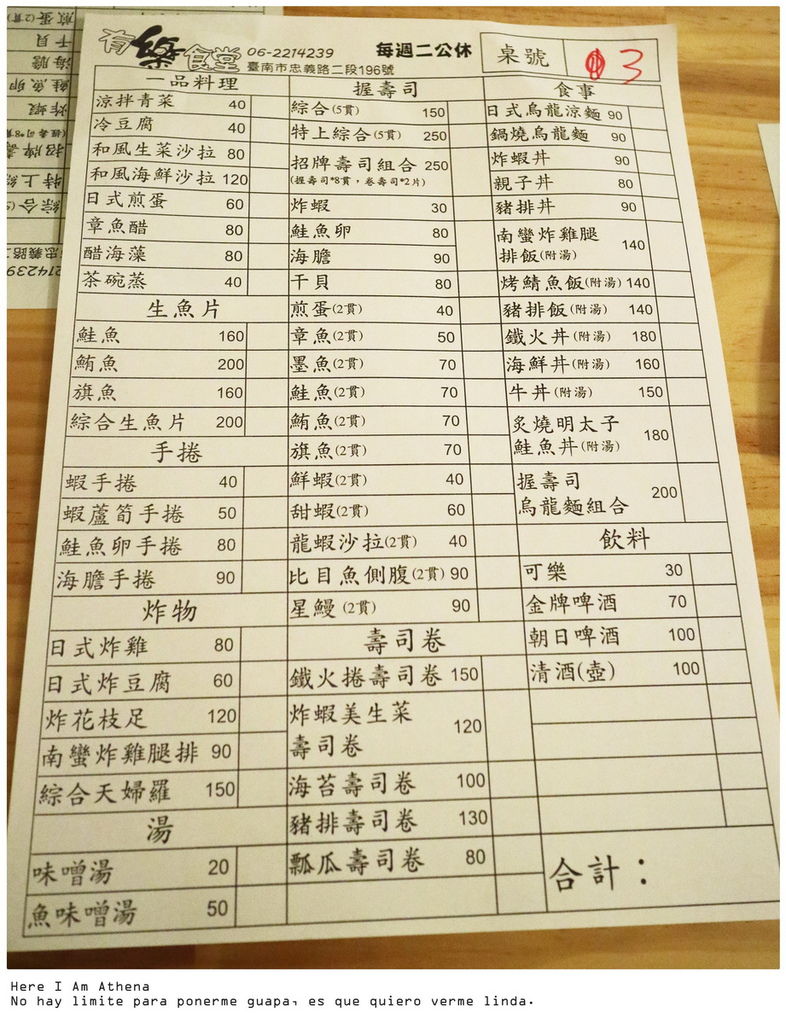 有樂食堂
06-2214239
每週二公休
臺南市忠義路二段196號
桌號
3
一品料理
涼拌青菜 40
冷豆腐 40
和風生菜沙拉 80
和風海鮮沙拉 120
日式煎蛋 60
章魚醋 80
醋海藻 80
茶碗蒸 40
生魚片
鮭魚 160
鮪魚 200
旗魚 160
綜合生魚片 200
手捲
蝦手捲 40
蝦蘆筍手捲 50
鮭魚卵手捲 80
海膽手捲 90
炸物
日式炸雞 80
日式炸豆腐 60
炸花枝足 120
南蠻炸雞腿排 90
綜合天婦羅 150
湯
味噌湯 20
魚味噌湯 50
握壽司
綜合(5貫) 150
特上綜合(5貫) 250
招牌壽司組合 250
(握壽司*8貫，卷壽司*2片)
炸蝦 30
鮭魚卵 80
海膽 90
干貝 80
煎蛋(2貫) 40
章魚(2貫) 50
墨魚(2貫) 70
鮭魚(2貫) 70
鮪魚(2貫) 70
旗魚(2貫) 70
鮮蝦(2貫) 40
甜蝦(2貫) 60
龍蝦沙拉(2貫) 40
比目魚側腹(2貫) 90
星鰻(2貫) 90
壽司卷
鐵火捲壽司卷 150
炸蝦美生菜
壽司卷 120
海苔壽司卷 100
豬排壽司卷 130
瓢瓜壽司卷 80
食事
日式烏龍涼麵 90
鍋燒烏龍麵 90
炸蝦丼 90
親子丼 80
豬排丼 90
南蠻炸雞腿
排飯(附湯) 140
烤鯖魚飯(附湯) 140
豬排飯(附湯) 140
鐵火丼(附湯) 180
海鮮丼(附湯) 160
牛丼(附湯) 150
炙燒明太子
鮭魚丼(附湯) 180
握壽司
烏龍麵組合 200
飲料
可樂 30
金牌啤酒 70
朝日啤酒 100
清酒(壺) 100
合計：
Here I Am Athena
No hay limite para ponerme guapa, es que quiero verme linda.